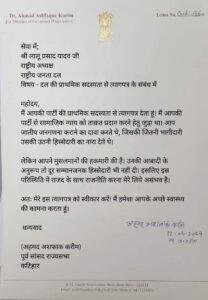 Dr. Ahmad Ashfaque Karim
Ex. Member of Parliament (Rajya Sabha)
Letter No.
सेवा में,
श्री लालू प्रसाद यादव जी
राष्ट्रीय अध्यक्ष
राष्ट्रीय जनता दल
विषय - दल की प्राथमिक सदस्यता से त्यागपत्र के संबंध में
महोदय,
मैं आपकी पार्टी की प्राथमिक सदस्यता से त्यागपत्र देता हूं। मैं आपकी
पार्टी से सामाजिक न्याय को ताकत प्रदान करने हेतु जुड़ा था। आप
जातीय जनगणना कराने का दावा करते थे, जिसकी जितनी भागीदारी
उसकी उतनी हिस्सेदारी का नारा देते थे।
लेकिन आपने मुसलमानों की हकमारी की है। उनकी आबादी के
अनुरूप तो दूर सम्मानजनक हिस्सेदारी भी नहीं दी। इसलिए इस
परिस्थिति में राजद के साथ राजनीति करना मेरे लिये असंभव है।
अत: मेरे इस त्यागपत्र को स्वीकार करें! मैं हमेशा आपके अच्छे स्वास्थ्य
की कामना करता हूं।
धन्यवाद
(अहमद अशफाक करीम)
पूर्व सांसद राज्यसभा
कटिहार